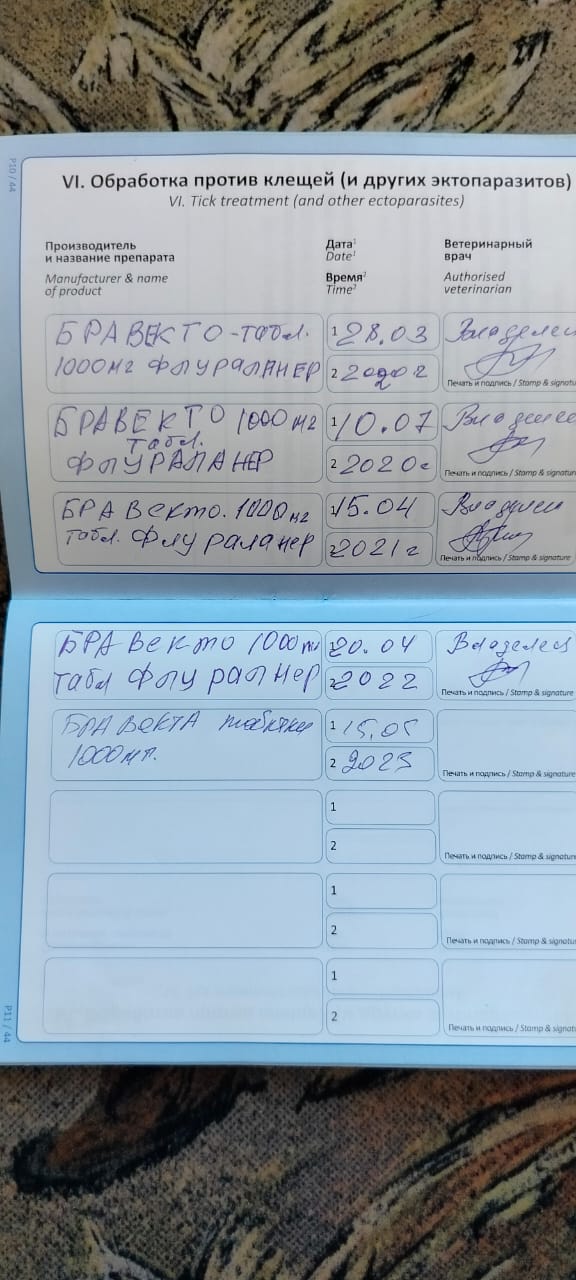 P10 / 44
VI. Обработка против клещей (и других эктопаразитов)
VI. Tick treatment (and other ectoparasites)
Производитель
и название препарата
Manufacturer & name
of product
Дата¹
Date¹
Время²
Time²
Ветеринарный
врач
Authorised
veterinarian
БРАВЕКТО-табл.
1000мг ФЛУРАЛАНЕР
1 28.03
2 2020г
Владелец
Печать и подпись / Stamp & signatu
БРАВЕКТО 1000мг
табл.
ФЛУРАЛАНЕР
1 10.07
2 2020г
Владелец
Печать и подпись / Stamp & signatu
БРАВекто. 1000мг
табл. Флураланер
1 15.04
2 2021г
Владелец
Печать и подпись / Stamp & signature
БРАВекто 1000мг
табл Флуралнер
1 20.04
2 2022
Владелец
Печать и подпись / Stamp & signature
БРАВЕКТА
1000мг.
1 15.05
2 2023
Печать и подпись / Stamp & signature
1
2
Печать и подпись / Stamp & signature
1
2
Печать и подпись / Stamp & signatu
1
2
Печать и подпись / Stamp & signatu
P11 / 44